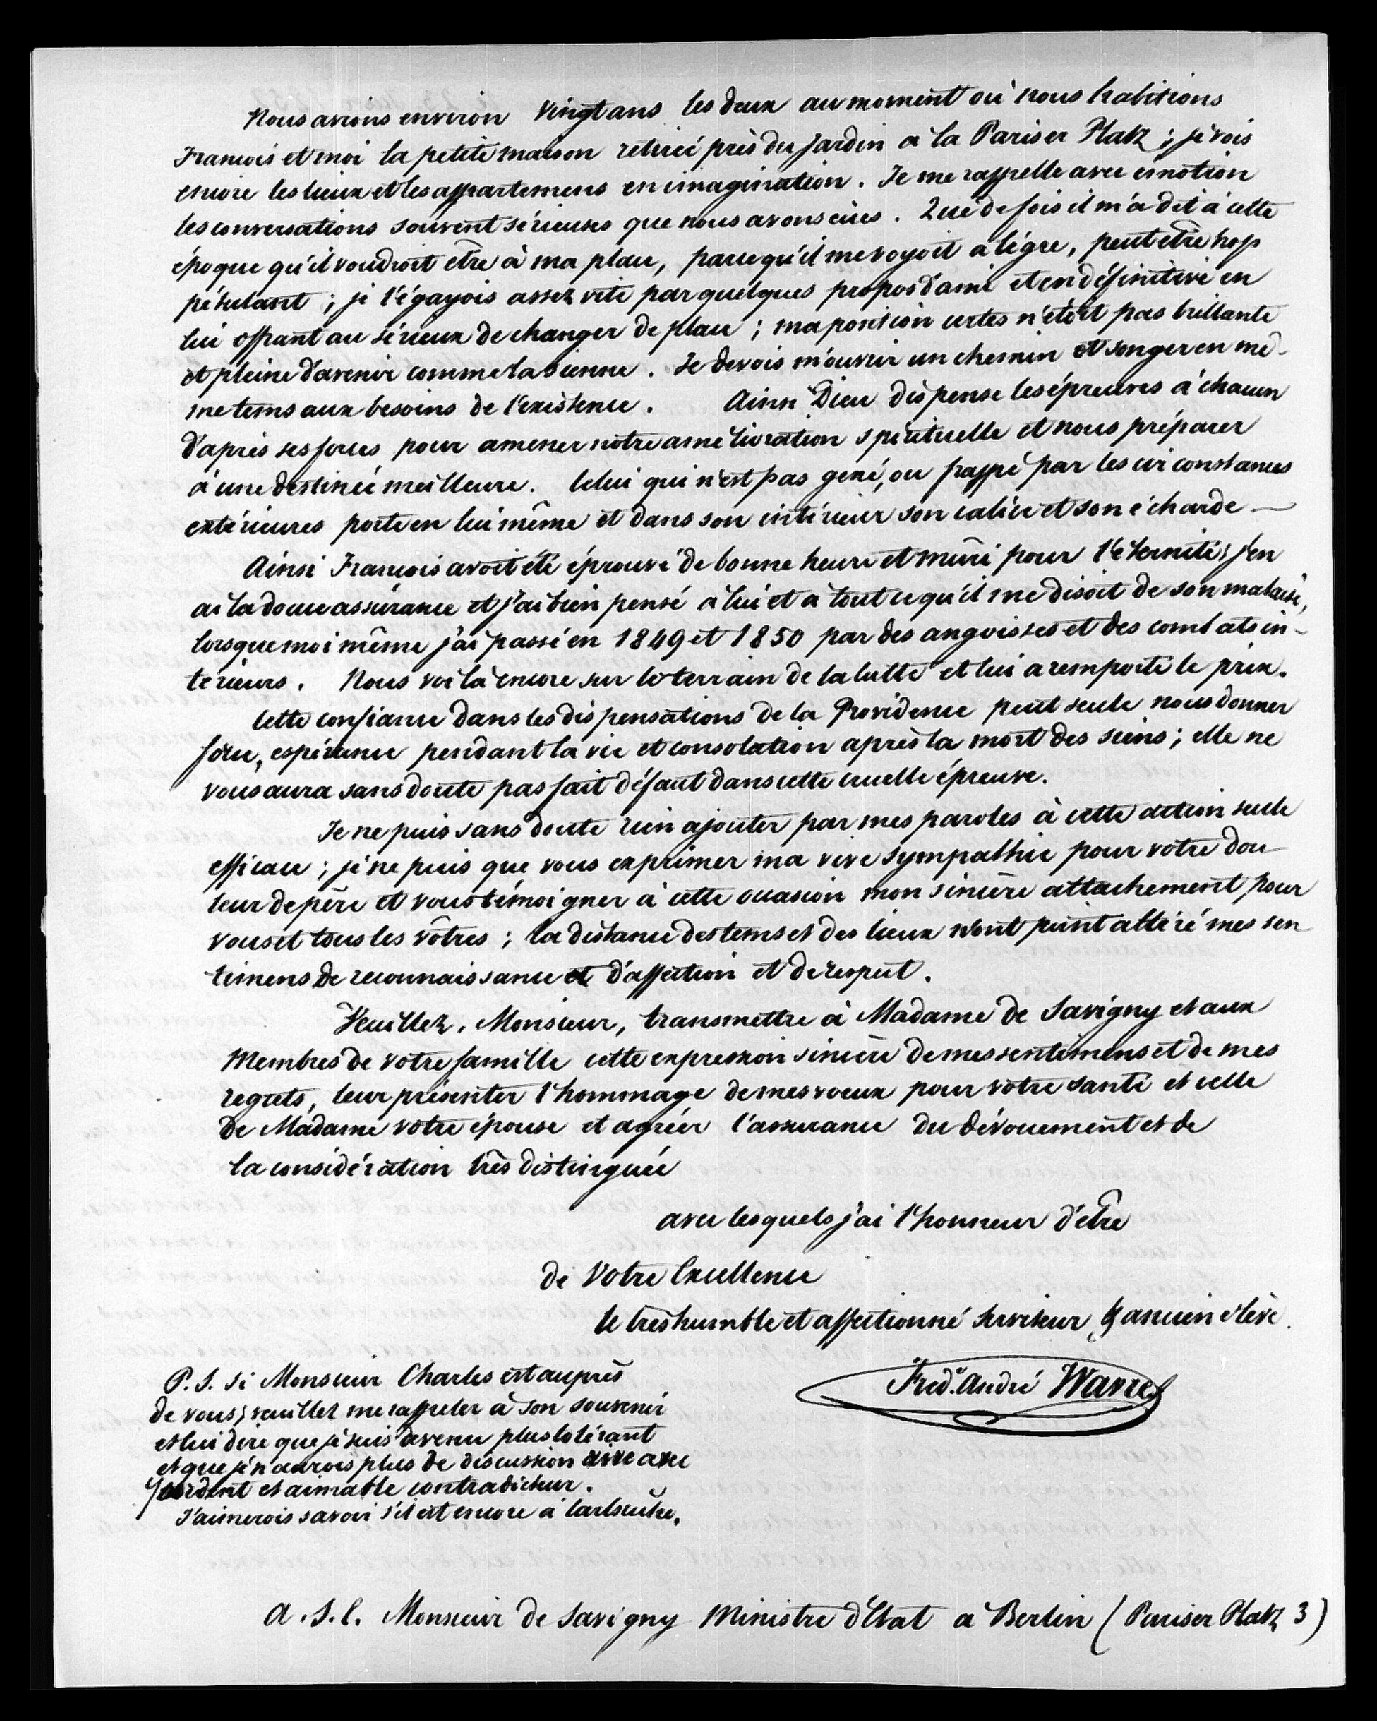 Nous avions environ vingt ans les deux au moment où nous habitions
François et moi la petite maison retirée près du jardin à la Pariser Platz ; je vois
encore les lieux et les appartemens en imagination. Je me rappelle avec émotion
les conversations souvent sérieuses que nous avons eües. Que de fois il m'a dit à cette
époque qu'il voudroit être à ma place, parcequ'il me voyoit allègre, peut être trop
pétulant ; je l'égayois assez vite par quelques propos d'ami et en définitive en
lui offrant au sérieux de changer de place ; ma position certes n'étoit pas brillante
et pleine d'avenir comme la sienne. Je devois m'ouvrir un chemin et songer en mê-
me tems aux besoins de l'existence. Ainsi Dieu dispense les épreuves à chacun
d'après ses forces pour amener notre amélioration spirituelle et nous préparer
à une destinée meilleure. Celui qui n'est pas gené, ou frappé par les circonstances
extérieures porte en lui même et dans son intérieur son calice et son écharde —
Ainsi François avoit été éprouvé de bonne heure et mûri pour l'éternité ; j'en
ai la douce assurance et j'ai bien pensé à lui et à tout ce qu'il me disoit de son malaise,
lorsque moi même j'ai passé en 1849 et 1850 par des angoisses et des combats in-
térieurs. Nous voilà encore sur le terrain de la lutte et lui a remporté le prix.
Cette confiance dans les dispensations de la Providence peut seule nous donner
force, espérance pendant la vie et consolation après la mort des siens ; elle ne
vous aura sans doute pas fait défaut dans cette cruelle épreuve.
Je ne puis sans doute rien ajouter par mes paroles à cette action seule
efficace ; je ne puis que vous exprimer ma vive sympathie pour votre dou-
leur de père et vous témoigner à cette occasion mon sincère attachement pour
vous et tous les vôtres ; la distance des tems et des lieux n'ont point altéré mes sen
timens de reconnaissance et d'affection et de respect.
Veuillez, Monsieur, transmettre à Madame de Savigny et aux
Membres de votre famille cette expression sincère de mes sentimens et de mes
regrets, leur présenter l'hommage de mes voeux pour votre santé et celle
de Madame votre épouse et agréer l'assurance du dévouement et de
la considération très distinguée
avec lesquels j'ai l'honneur d'être
de Votre Excellence
le très humble et affectionné serviteur & ancien élève.
Fréd. André Wavre
P. S. Si Monsieur Charles est auprès
de vous, veuillez me rappeler à son souvenir
et lui dire que je suis devenu plus tolérant
et que je n'aurois plus de discussion vive avec
l'ardent et aimable contradicteur.
J'aimerois savoir s'il est encore à Carlsruhe.
A. S. E. Monsieur de Savigny Ministre d'Etat à Berlin (Pariser Platz 3)